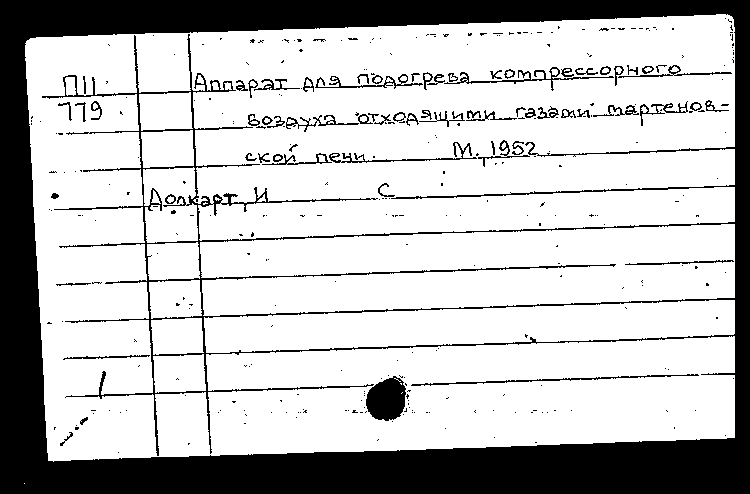 П11
779
Аппарат для подогрева компрессорного
воздуха отходящими газами мартенов-
ской печи. М., 1952.
Долкарт, И С